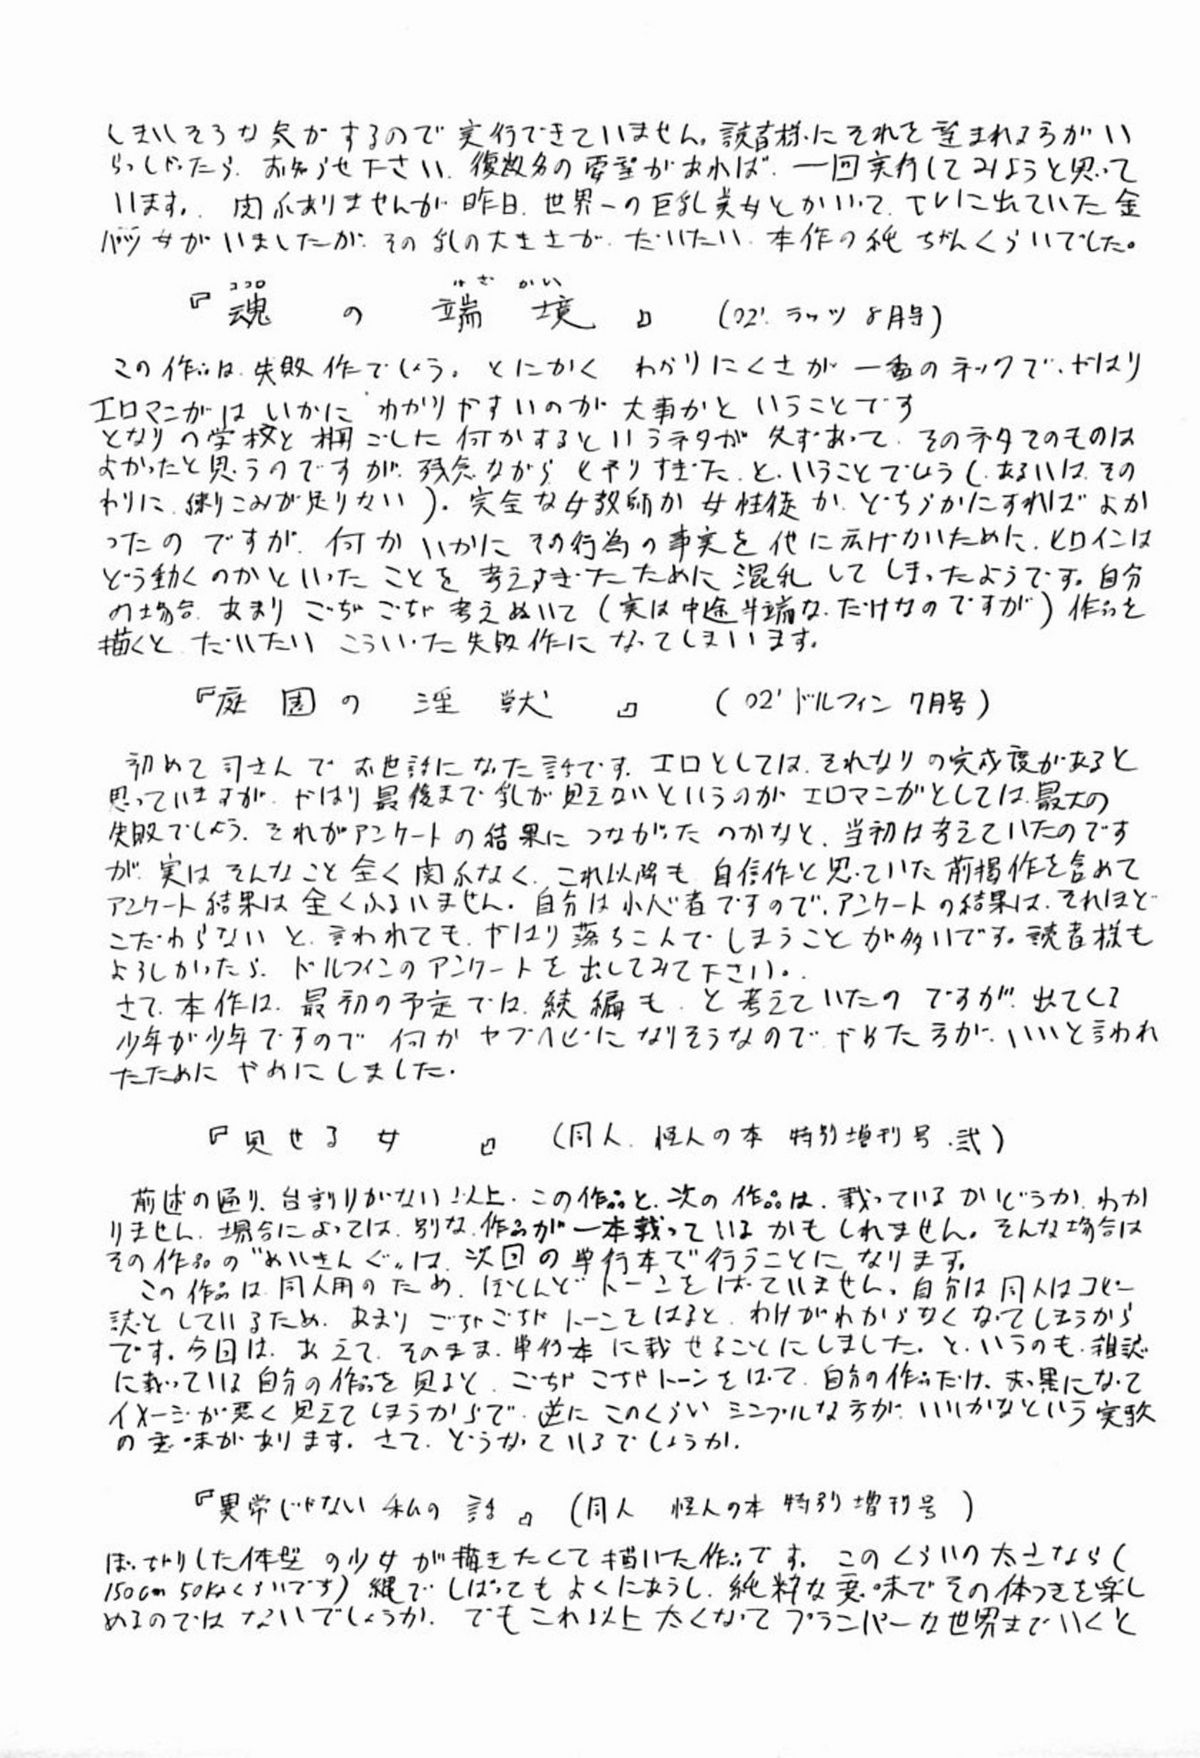 しまいそうな気がするので実行できていません。読者様にそれを望まれる方がい
らっしゃったら、お知らせ下さい、復数名の要望があれば、一回実行してみようと思って
います。関係ありませんが昨日、世界一の巨乳美女とかいって、TVに出ていた金
パツ女がいましたが、その乳の大きさが、だいたい、本作の純ちゃんくらいでした。
『魂の端境』(02'.ラッツ8月号)
ココロ はざかい
この作品は、失敗作でしょう。とにかくわかりにくさが一番のネックで、やはり
エロマンガはいかにわかりやすいのが大事かということです
となりの学校と柵ごしに何かするというネタが先ずあって、そのネタてのものは
よかったと思うのですが、残念ながらヒネりすぎた、と、いうことでしょう(あるいは、その
わりに、練りこみが足りない)。完全な女教師か女性徒か、どちらかにすればよか
ったのですが、何かいかにその行為の事実を他に広げないために、ヒロインは
どう動くのかといったことを考えすぎたために混乱してしまったようです。自分
の場合、あまりごちゃごちゃ考えぬいて(実は中途半端な、だけなのですが)作品を
描くと、だいたいこういった失敗作になってしまいます。
『庭園の淫獣』(02'ドルフィン7月号)
初めて司さんでお世話になった話です。エロとしては、それなりの完成度があると
思っていますが、やはり最後まで乳が見えないというのがエロマンガとしては、最大の
失敗でしょう。それがアンケートの結果につながったのかなと、当初は考えていたのです
が、実はそんなこと全く関係なく、これ以降も、自信作と思っていた前掲作を含めて
アンケート結果は全くふるいません。自分は小心者ですので、アンケートの結果は、それほど
こだわらないと、言われても、やはり落ちこんでしまうことが多いです。読者様も
よろしかったら、ドルフィンのアンケートを出してみて下さい。
さて、本作は、最初の予定では、続編も、と考えていたのですが、出てくる
少年が少年ですので何かヤブヘビになりそうなので、やめた方が、いいと言われ
たためにやめにしました。
『見せる女』(同人、怪人の本 特別増刊号.弐)
前述の通り、台割りがない以上、この作品と、次の作品は、載っているかどうか、わか
りません、場合によっては、別な作品が一本載っているかもしれません。そんな場合は
その作品の“めいきんぐ”は、次回の単行本で行うことになります。
この作品は、同人用のため、ほとんどトーンをはっていません。自分は同人はコピー
誌としているため、あまりごちゃごちゃトーンをはると、わけがわからなくなってしまうから
です。今回は、あえて、そのまま、単行本に載せることにしました。と、いうのも、雑誌
に載っている自分の作品を見ると、ごちゃごちゃトーンをはって、自分の作品だけ、まっ黒になって
イメージが悪く見えてしまうからで、逆にこのくらいシンプルな方が、いいかなという実験
の意味があります。さて、どうなっているでしょうか。
『異常じゃない私の話』(同人 怪人の本 特別増刊号)
ぽっちゃりした体型の少女が描きたくて描いた作品です。このくらいの太さなら(
150cm 50kgくらいです)縄でしばってもよくにあうし、純粋な意味でその体つきを楽し
めるのではないでしょうか。でもこれ以上太くなってプランパーな世界までいくと